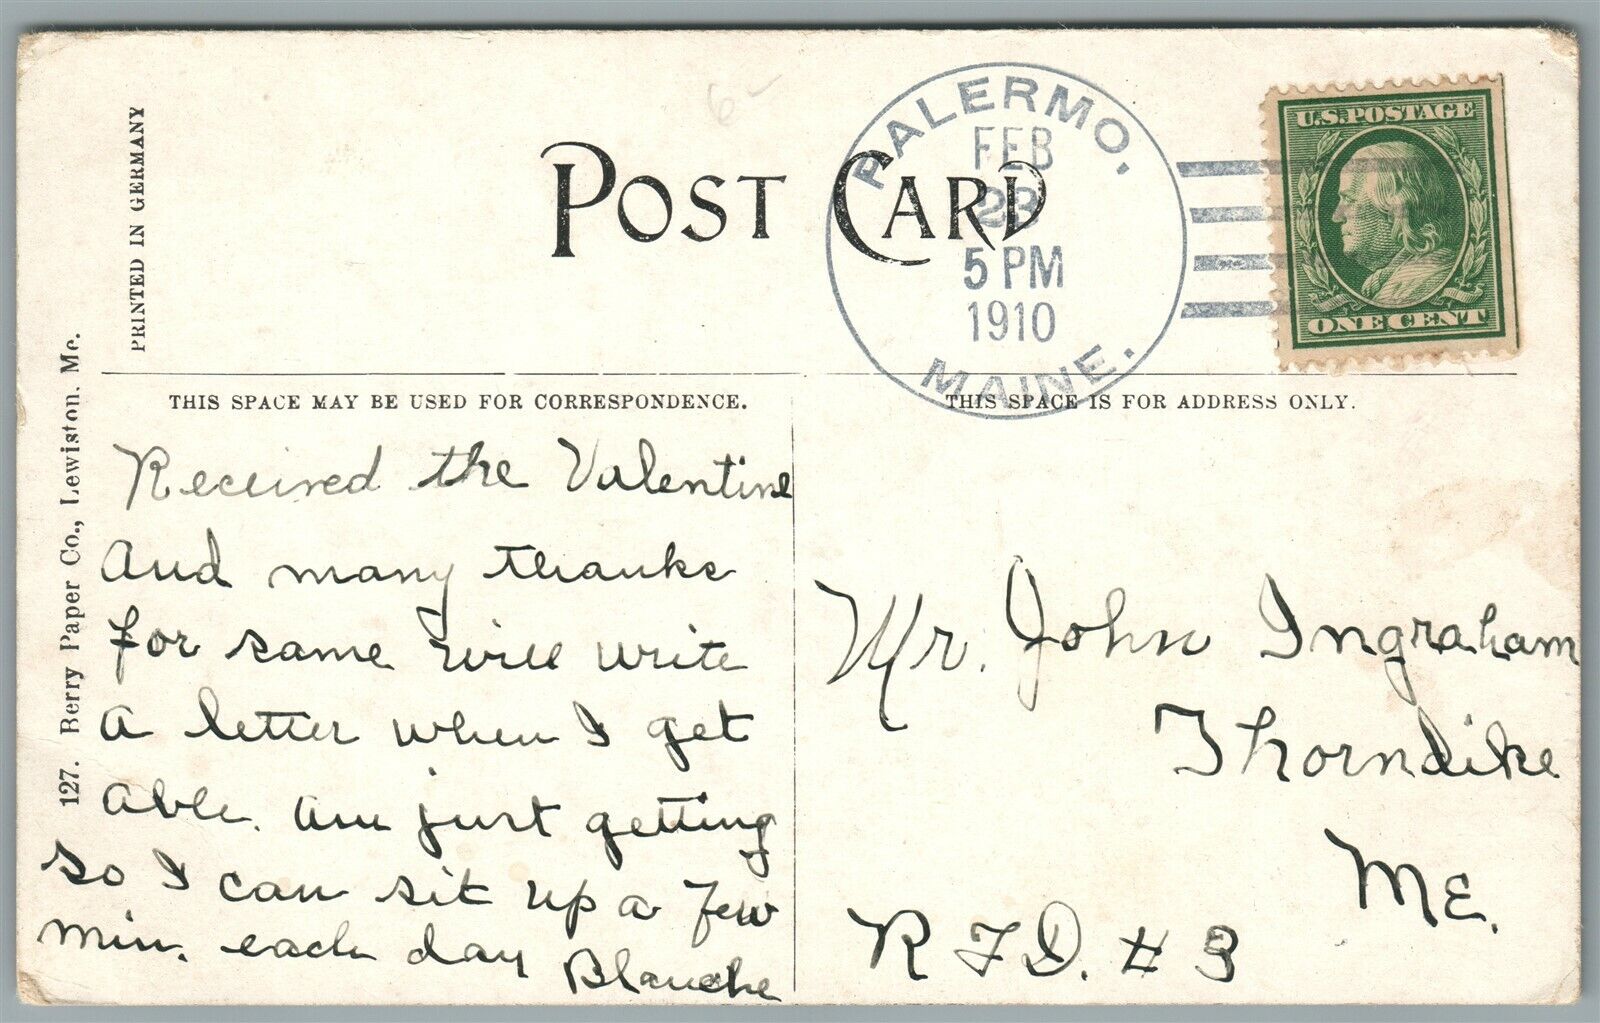 PRINTED IN GERMANY
127. Berry Paper Co., Lewiston. Me.
POST CARD
PALERMO,
FEB
23
5 PM
1910
MAINE.
U.S. POSTAGE
ONE CENT
THIS SPACE MAY BE USED FOR CORRESPONDENCE.
THIS SPACE IS FOR ADDRESS ONLY.
Received the Valentine
And many thanks
for same will write
A letter when I get
Able. Am just getting
so I can sit up a few
min. each day
Blanche
Mr. John Ingraham
Thorndike
ME.
R F D. # 3
6-